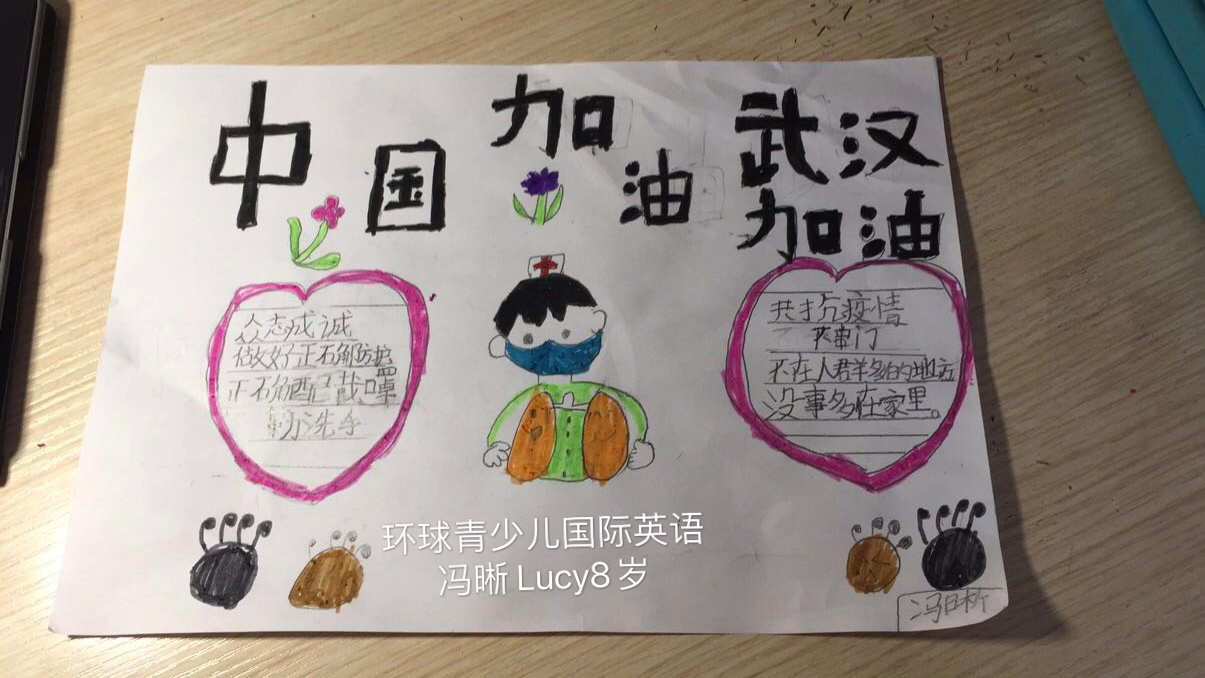 中国加油
武汉
加油
众志成诚
做好正确防护
正确配戴口罩
勤洗手
共抗疫情
不串门
不在人群多的地方
没事多在家里。
环球青少儿国际英语
冯晰 Lucy8 岁
冯晰